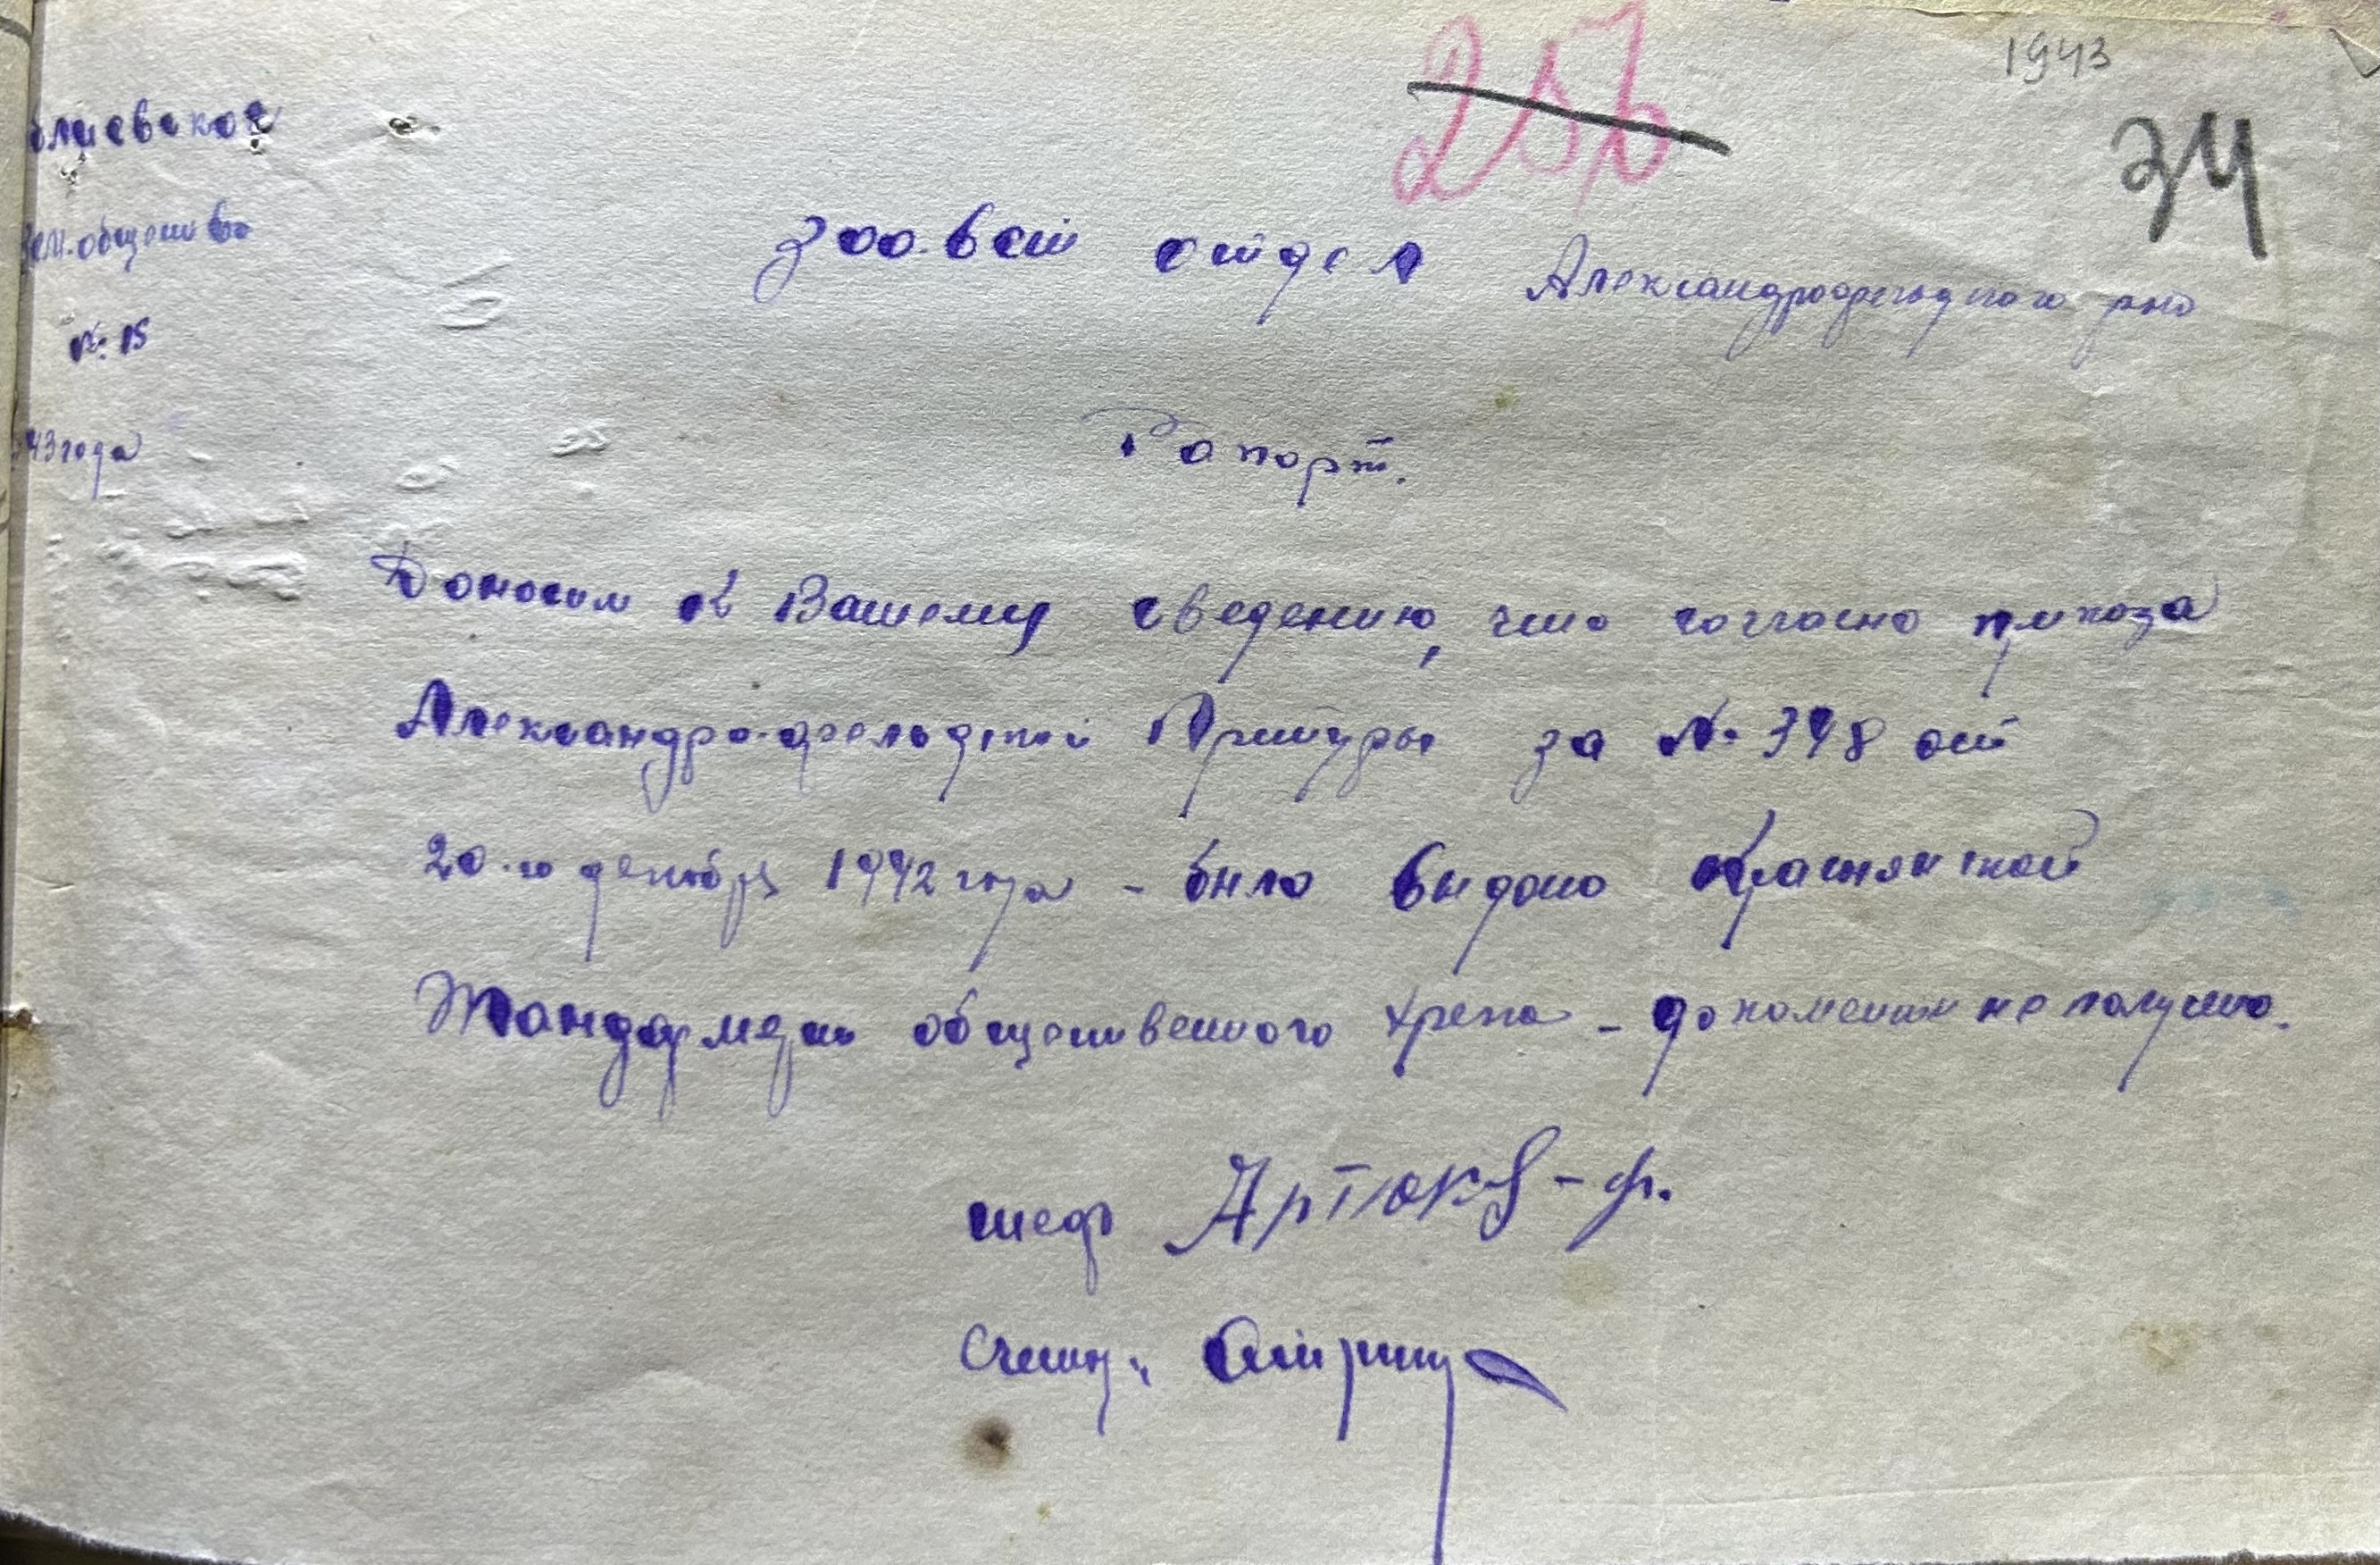 1943
257
34
лиевское
Зем. общество
№ 15
43 года
Зоо-вет отдел Александрофельдского р-на
Рапорт.
Доносим к Вашему сведению, что согласно приказа
Александро-фельдской Притуры за № 348 от
20-го декабря 1942 года - было выдано
Жандармерии общественного хрена - до момента не получено.
шеф Артюков-ф.
Счетов.